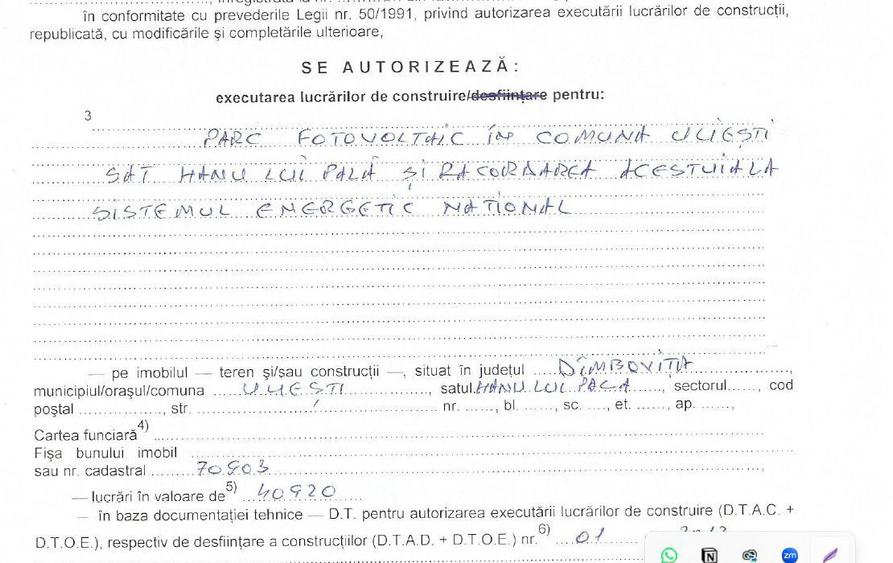 în conformitate cu prevederile Legii nr. 50/1991, privind autorizarea executării lucrărilor de construcții,
republicată, cu modificările și completările ulterioare,
SE AUTORIZEAZĂ:
executarea lucrărilor de construire/desființare pentru:
3
PARC FOTOVOLTAIC ÎN COMUNA ULIEȘTI
SAT HANU LUI PALĂ ȘI RACORDAREA ACESTUIA LA
SISTEMUL ENERGETIC NAȚIONAL
— pe imobilul — teren și/sau construcții —, situat în județul DÎMBOVIȚA,
municipiul/orașul/comuna ULIEȘTI, satul HANU LUI PALA, sectorul ......, cod
poștal ............, str. ............ nr. ......, bl. ......, sc. ..., et. ...., ap. ......,
Cartea funciară 4)
Fișa bunului imobil
sau nr. cadastral 70903,
— lucrări în valoare de 5) 40920
— în baza documentației tehnice — D.T. pentru autorizarea executării lucrărilor de construire (D.T.A.C. +
D.T.O.E.), respectiv de desființare a construcțiilor (D.T.A.D. + D.T.O.E.) nr. 6) 01
zm